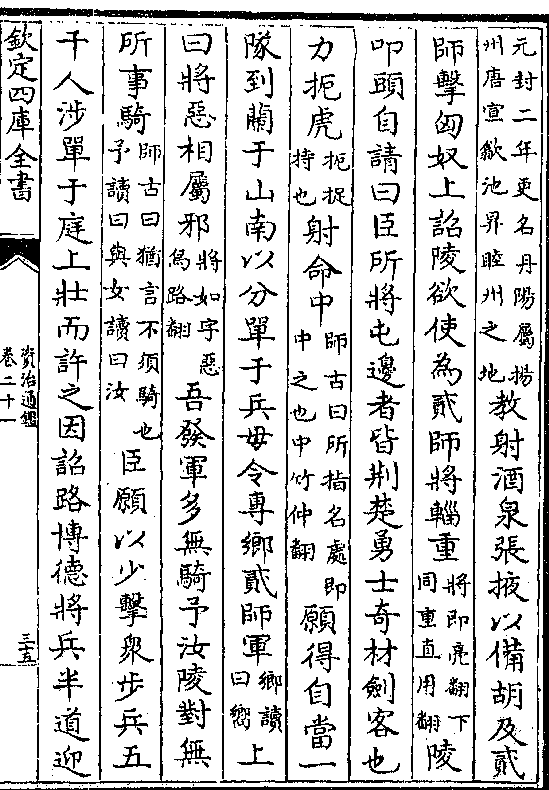 元封二年更名丹陽屬揚
州唐宣歙池昇睦州之地
教射酒泉張掖以備胡及貳
師擊匈奴上詔陵欲使為貳師將輜重
將即亮翻下
同重直用翻
陵
叩頭自請曰臣所將屯邊者皆荆楚勇士奇材劍客也
力扼虎
扼捉
持也
射命中
師古曰所指名處即
中之也中竹仲翻
願得自當一
隊到蘭于山南以分單于兵毋令專鄉貳師軍
鄉讀
曰嚮
上
曰將惡相屬邪
將如字惡
烏路翻
吾發軍多無騎予汝陵對無
所事騎
師古曰猶言不須騎也
予讀曰與女讀曰汝
臣願以少擊衆步兵五
千人涉單于庭上壯而許之因詔路博德將兵半道迎
欽定四庫全書
資治通鑑
卷二十一
三十五